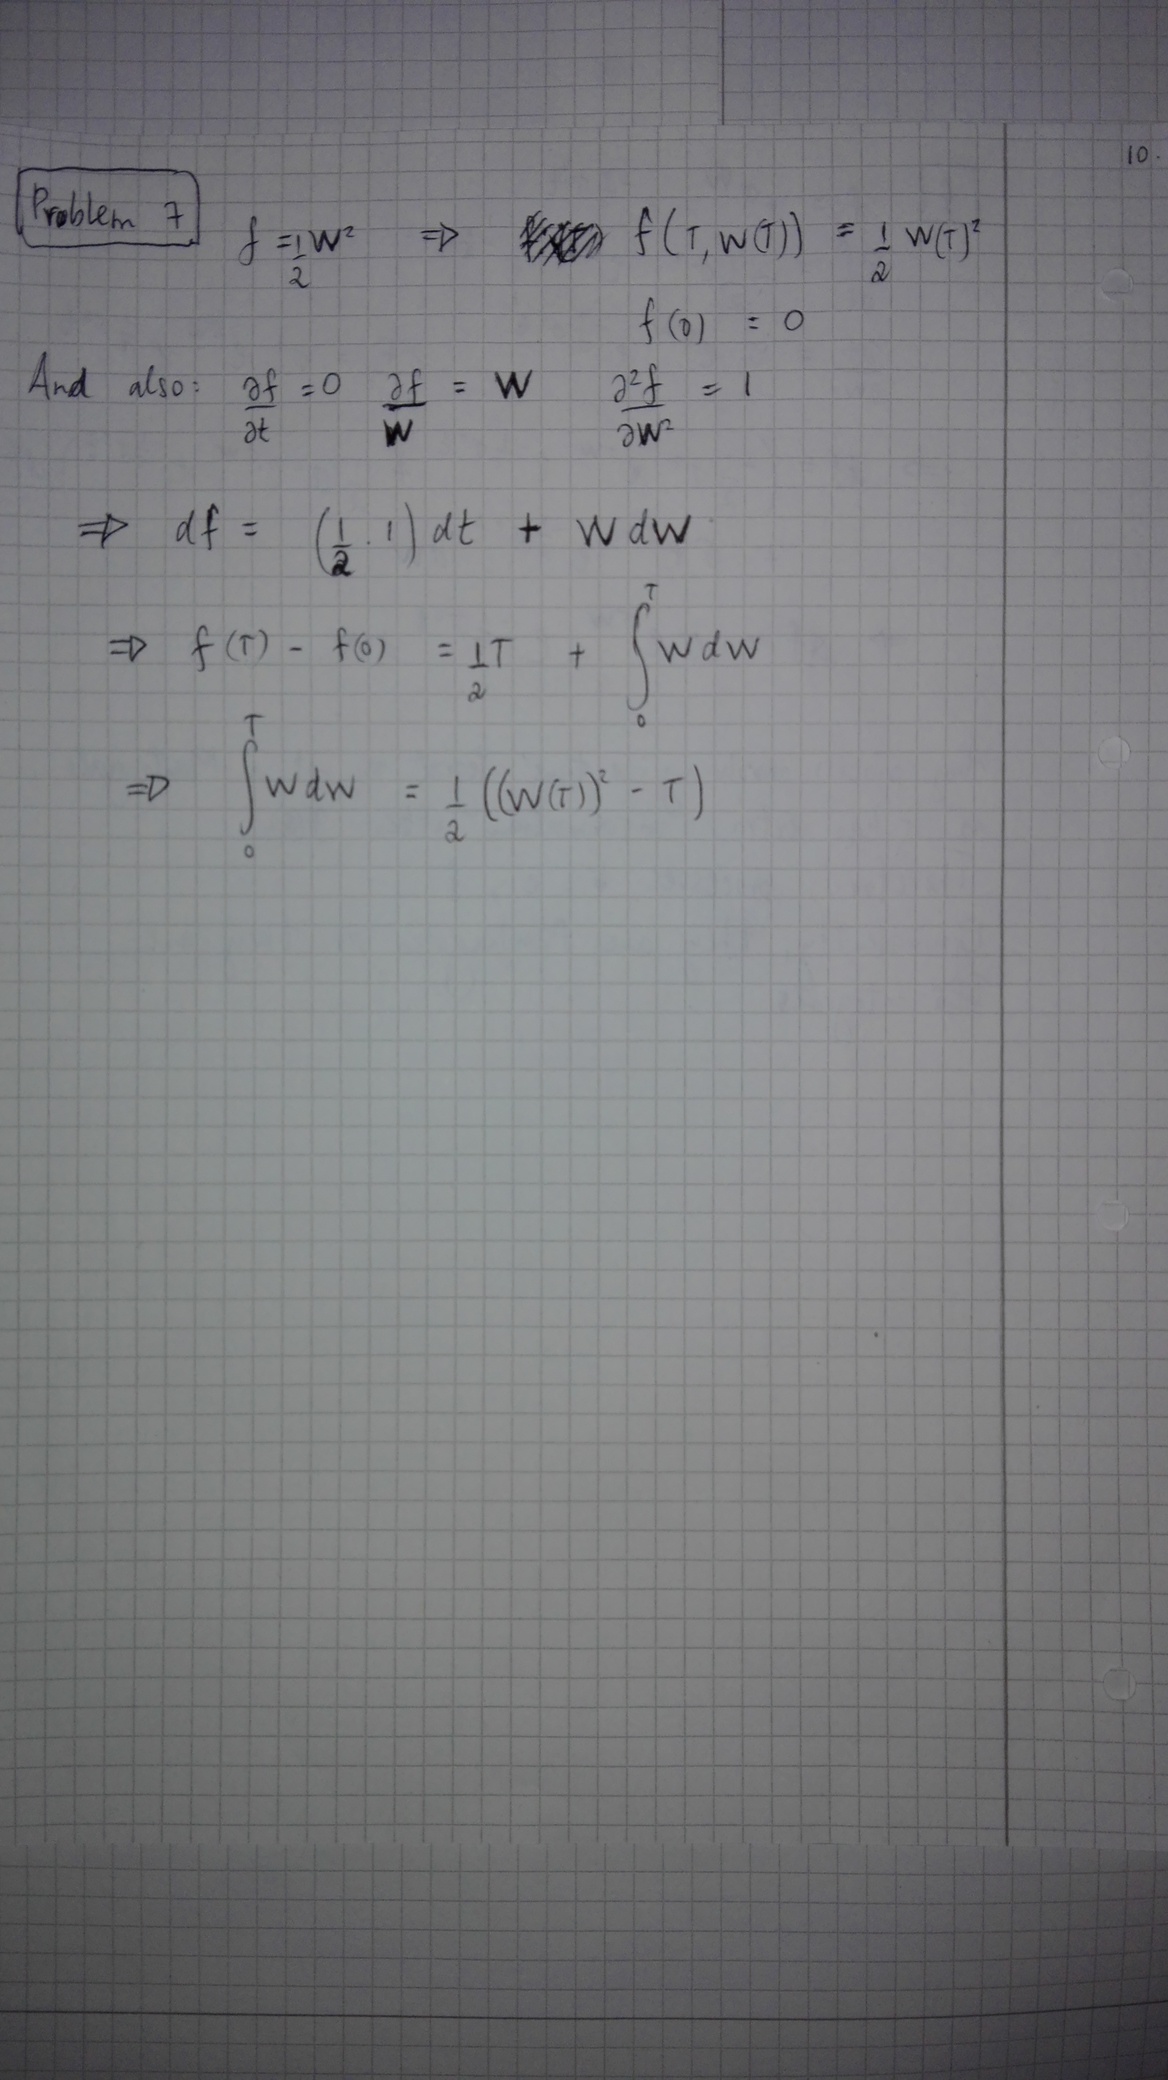 10.
Problem 7
f = 1/2 W² ⇒ f(T, W(T)) = 1/2 W(T)²
f(0) = 0
And also: ∂f/∂t = 0 ∂f/W = W ∂²f/∂W² = 1
⇒ df = (1/2 · 1) dt + W dW
⇒ f(T) - f(0) = 1/2 T + ∫₀ᵀ W dW
⇒ ∫₀ᵀ W dW = 1/2 ((W(T))² - T)